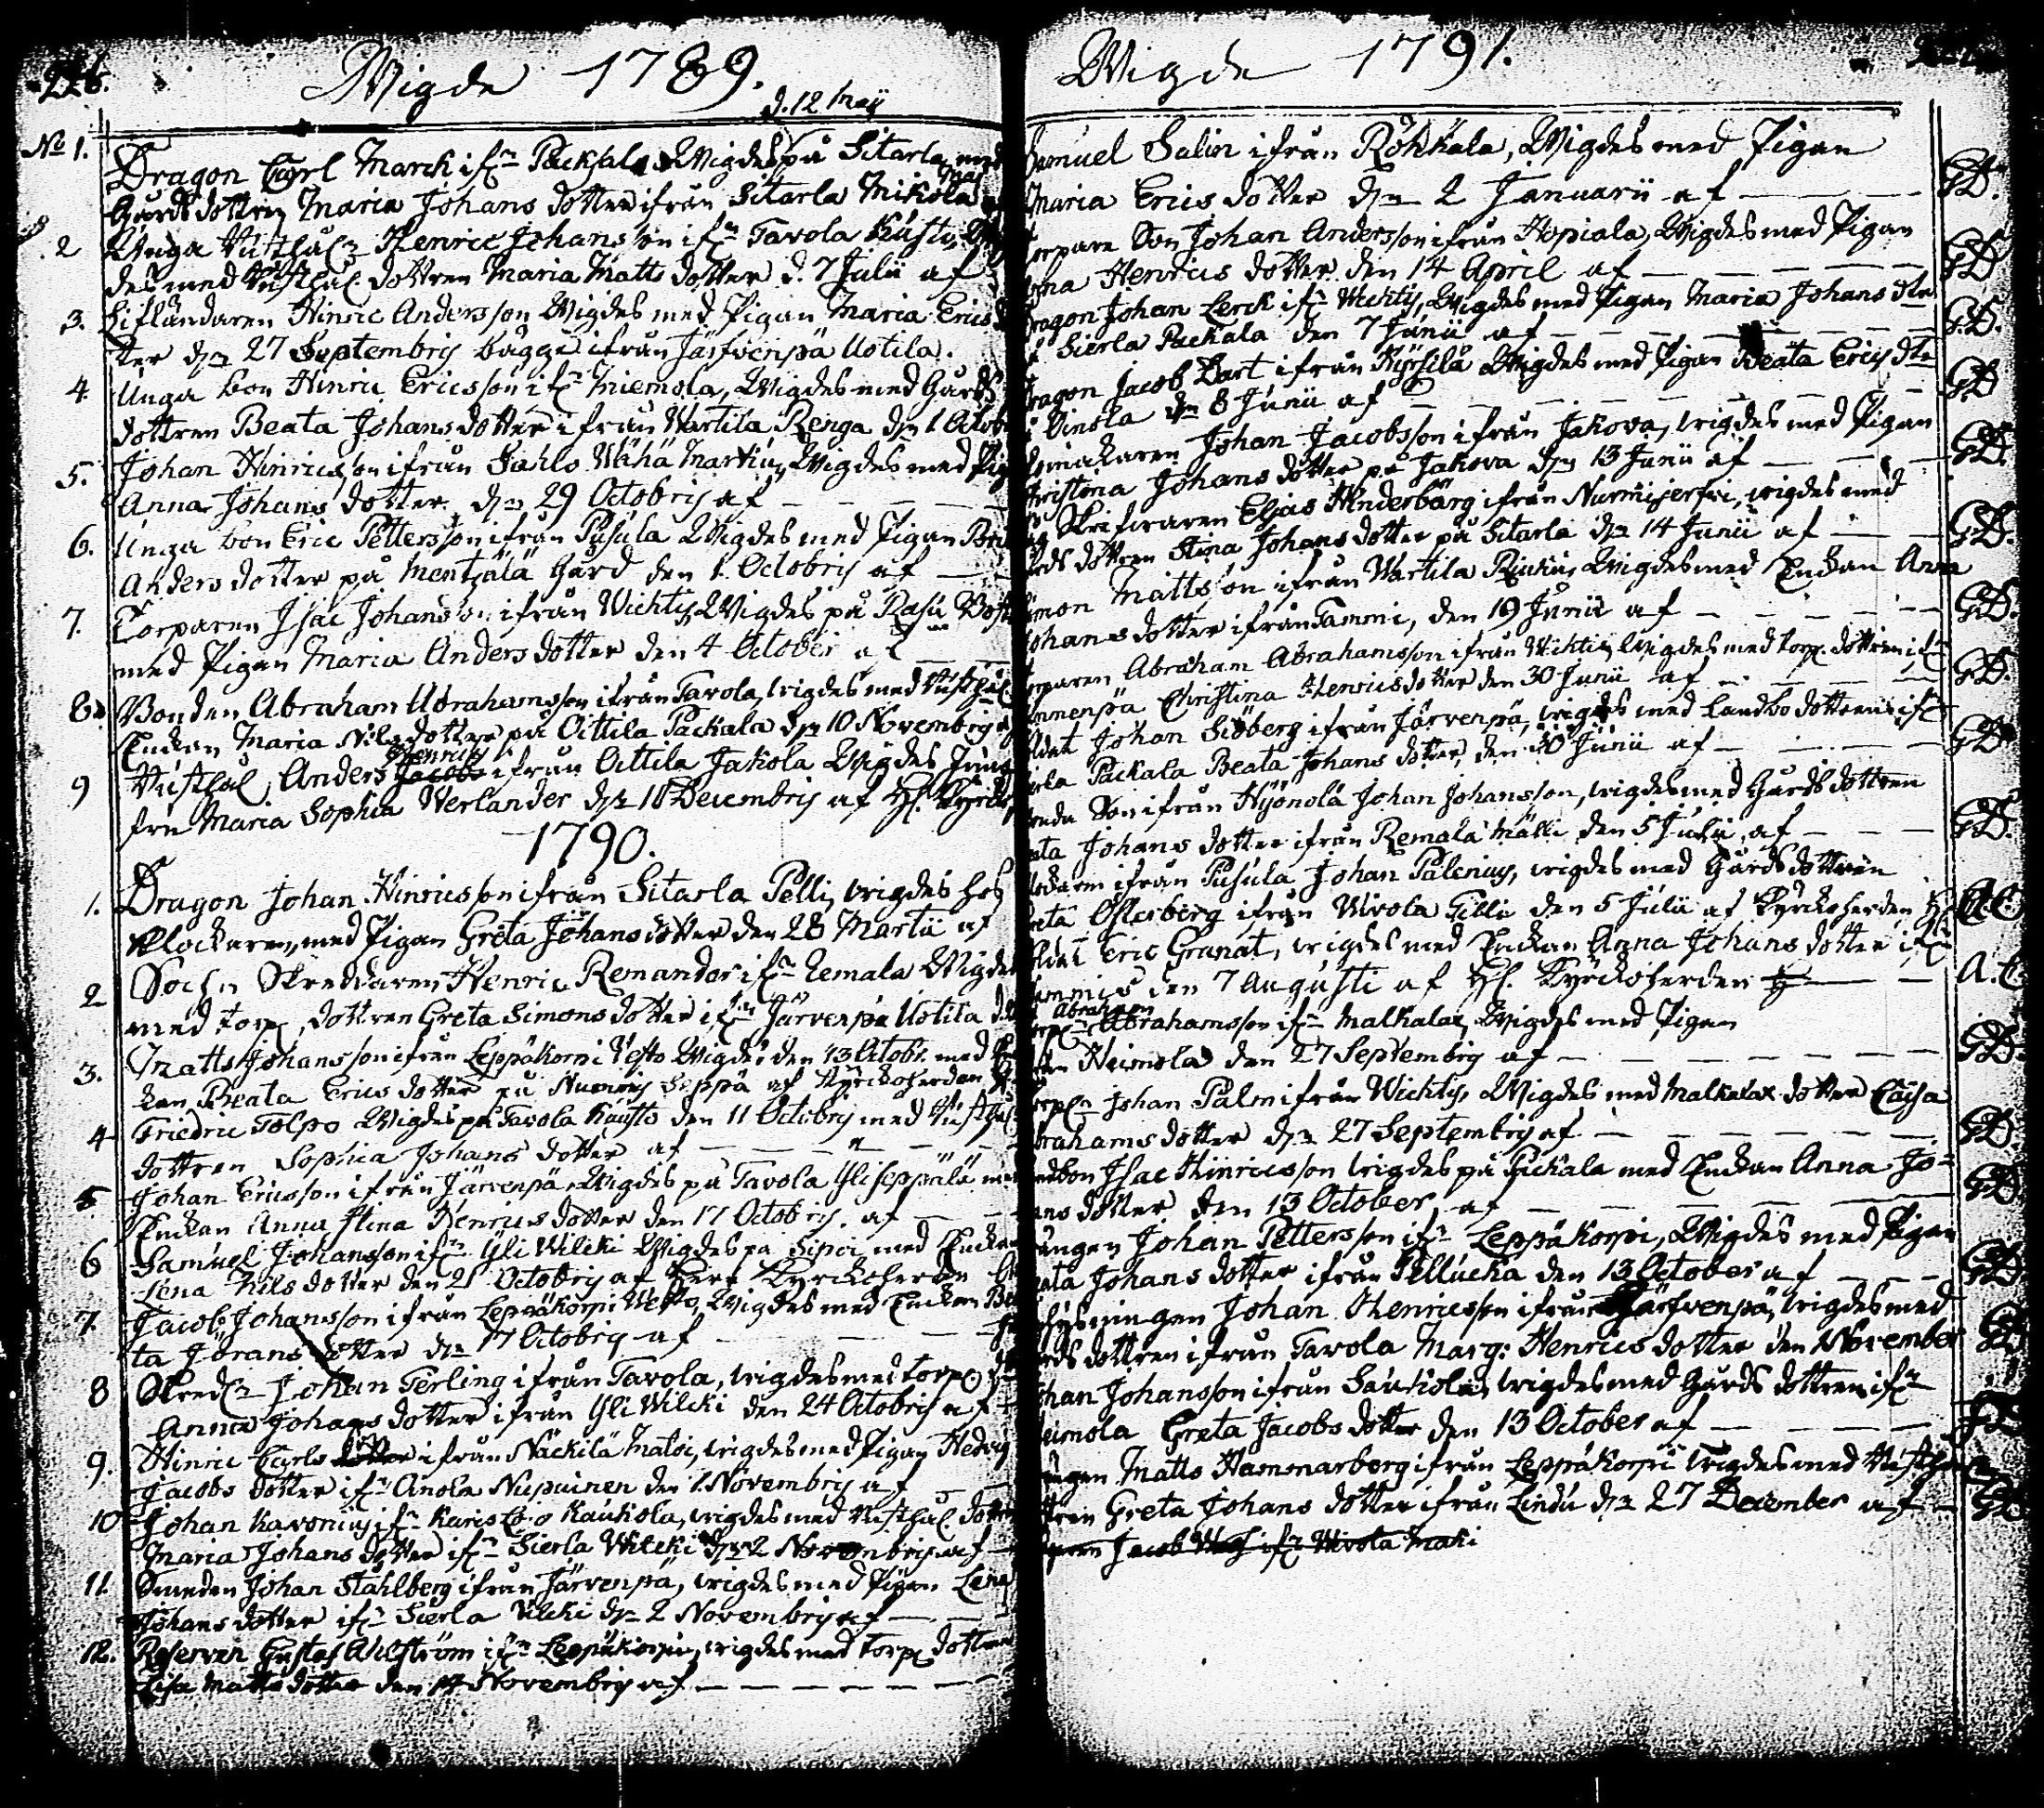 226.
Wigde 1789.
d. 12 Maij
No 1. Dragon Carl Marck ifn Packsala Wigdes på Sitarla med
Gårds dottren Maria Johans dotter ifrån Sitarla Mikola
2 Unga Rusthål Henric Johansson ifn Tavola Kusti, Wig
des med Rusthål dottren Maria Matts dotter d. 7 Julii af
3. Lifländaren Hinric Andersson Wigdes med Pigan Maria Erics do
ter den 27 Septembris bägge ifrån Järfvenpä Uotila.
4. Unga bon Hinric Ericsson ifn Niemola, Wigdes med Gårds
dottren Beata Johans dotter ifrån Wartila Renga den 1 Octob
5. Johan Hinricsson ifrån Sahlo Wähä Marttu, Wigdes med Pig
Anna Johans dotter den 29 Octobris af — —
6. Unga bon Eric Pettersson ifrån Pusula Wigdes med Pigan
Anders dotter på Mentzälä Gård den 1. Octobris af — —
7. Torparen Isac Johansson ifrån Wichtis, Wigdes på Rasu
med Pigan Maria Anders dotter den 4 October af
8. Bonden Abraham Abrahamsson ifrån Tavola, wigdes med Rusthål
Enckan Maria Nils dotter på Oittila Packala den 10 Novembris
9 Rusthål, Anders Jacobs Henrics ifrån Oittila Jakola Wigdes Jung
fru Maria Sophia Werlander den 11 Decembris af H. Kyrck
1790.
1. Dragon Johan Hinricsson ifrån Sitarla Pelli, wigdes hos
Klockaren, med Pigan Greta Johans dotter den 28 Martii af
2 Sockn Skreddaren Henric Remander ifn Remala Wigdes
med torp, dottren Greta Simons dotter ifrån Järvenpä Uotila
3. Matts Johansson ifrån Leppäkorpi Vesto Wigdes den 13 Octobr. med En
kan Beata Erics dotter på Nummis Seppä af Kyrckoherden H.
4 Friedric Tolpo Wigdes på Tavola Kausto den 11 Octobris med Rusthål
dottren Sophia Johans dotter af — — — —
5 Johan Ericsson ifrån Järvenpä, Wigdes på Tavola Yliseppälä med
Enckan Anna Stina Henrics dotter den 17 Octobris. af — —
6 Samuel Johansson ifn Yli Wilcki Wigdes på Sipoi med Enckan
Lena Nils dotter den 21 Octobris af Herr Kyrckoherden
7. Jacob Johansson ifrån Leppäkorpi Westo, Wigdes med Enckan Bea
ta Jörans dotter den 17 Octobris af — — — —
8 Skredn Johan Ferling ifrån Tavola, wigdes med torp
Anna Johans dotter ifrån Yli Wilcki den 24 Octobris af
9. Hinric Carls dotter ifrån Näckilä Matoi, wigdes med Pigan Hedvig
Jacobs dotter ifn Anola Nupuinen den 1 Novembris af
10 Johan Kavonius ifn Karislojo Kaukola, wigdes med Rusthål. dottren
Maria Johans dotter ifn Sierla Wilcki den 2 Novembris af
11. Smeden Johan Stahlberg ifrån Järvenpä, wigdes med Pigan Lena
Johans dotter ifn Sierla Vilcki den 2 Novembris af — —
12. Reserven Gustaf Ahlström ifn Leppäkorpi, wigdes med torp dottren
Lisa Matts dotter den 14 Novembris af — — — — — —
Wigde 1791.
Samuel Salin ifrån Röhkala, Wigdes med Pigan
Maria Erics dotter den 2 Januarii af — — GD.
orpare Son Johan Andersson ifrån Hopiala, Wigdes med Pigan
nna Henrics dotter den 14 April af — — — — GD
ragon Johan Lerck ifn Wichtis, Wigdes med Pigan Maria Johans dtr
Sierla Packala den 7 Junii af — — — — G.D.
ragon Jacob Dart ifrån Kyrsilä Wigdes med Pigan Beata Erics dtr
Oinola den 8 Junii af — — — — GD
makaren Johan Jacobsson ifrån Jakova, wigdes med Pigan
hristina Johans dotter på Jakova den 13 Junii af — — GD.
Skrifvaren Elias Hinderbärg ifrån Nurmijerfvi, wigdes med
rds dottren Stina Johans dotter på Sitarla den 14 Junii af — — GD.
imon Mattsson ifrån Wartila Riukus, Wigdes med Enckan Anna
ohans dotter ifrån Tammi, den 19 Junii af — — — GD.
rparen Abraham Abrahamsson ifrån Wichtis, Wigdes med torp. dottren ifn
mmenpä Christina Henricsdotter den 30 Junii af — — — GD.
ldat Johan Siöberg ifrån Järvenpä, wigdes med Landbo dottren ifn
rla Packala Beata Johans dotter, den 30 Junii af — — — GD
onda Son ifrån Hyönölä Johan Johansson, wigdes med Gårds dottren
ata Johans dotter ifrån Remala Mälli den 5 Julii, af — — — GD.
ockarn ifrån Pusula Johan Palenius, wigdes med Gårds dottren
reta Österberg ifrån Wivola Tilli den 5 Julii af Kyrckoherden A.C.
oldat Eric Granat, wigdes med Enckan Anna Johans dotter ifn
ummis den 7 Augusti af H. Kyrckoherden — A.C.
Abraham
orpn Abrahamsson ifn Malkalax, Wigdes med Pigan
Heimola den 27 Septembris af — — — — — GD.
orpn Johan Palm ifrån Wichtis, Wigdes med Malkalax dotter Caisa
brahams dotter den 27 Septembris af — — — — GD.
ndbon Isac Hinricsson wigdes på Packala med Enckan Anna Jo=
ans dotter den 13 October, af — — — — GD.
ungen Johan Pettersson ifn Leppäkorpi, Wigdes med Pigan
eata Johans dotter ifrån Pellucka den 13 October af — — GD
hysningen Johan Henricsson ifrån Järfvenpä, wigdes med
rds dottren ifrån Tavola Marg: Henrics dotter den 1 November GD
ohan Johansson ifrån Saukola, wigdes med Gårds dottren ifn
eimola Greta Jacobs dotter den 13 October af — — — GD
ungen Matts Hammarberg ifrån Leppäkorpi wigdes med Rusthål
ttren Greta Johans dotter ifrån Lindu den 27 December af — GD
Jacob ifn Wivola Maki